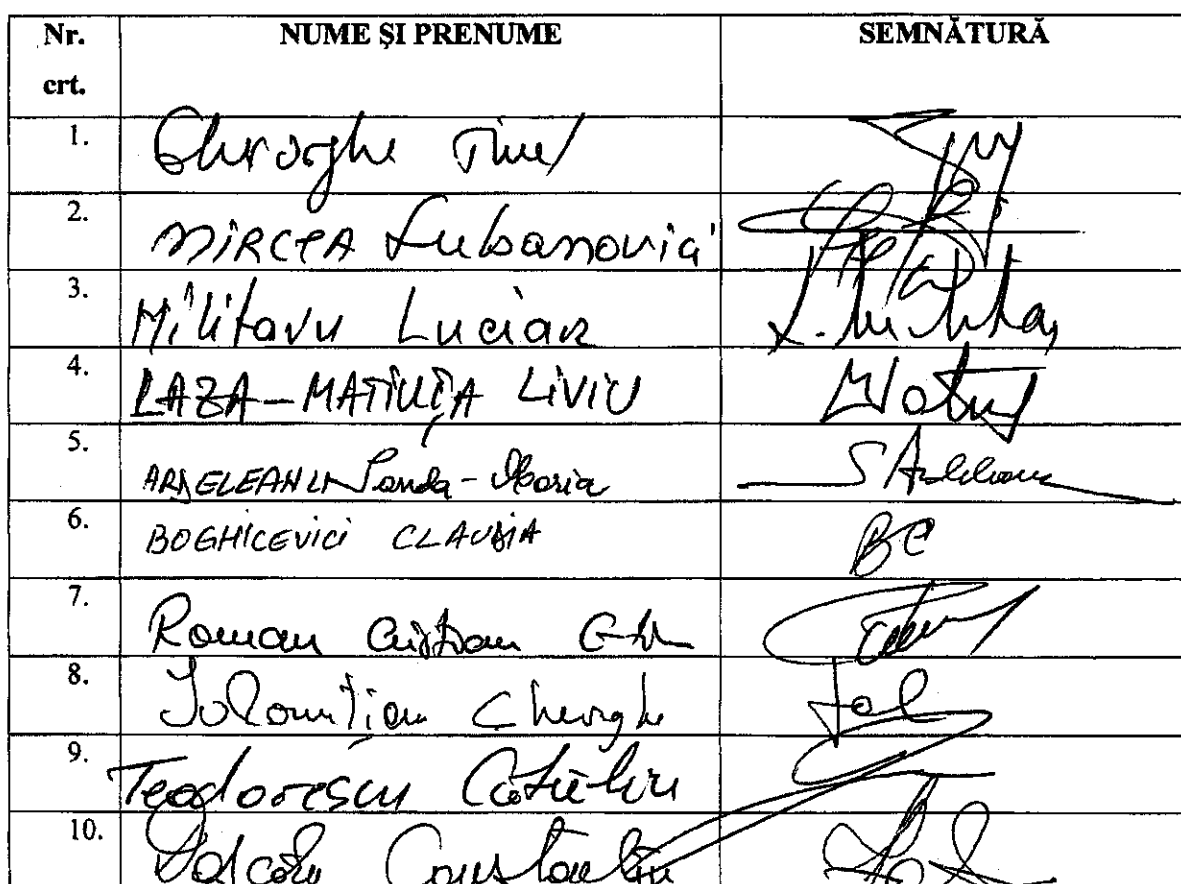 Nr. crt. NUME ȘI PRENUME SEMNĂTURĂ
1. Gheorghe
2. MIRCEA Lubanovici
3. Militaru Lucian
4. LAZA-MATIUȚA LIVIU
5. ARDELEANU Sanda-Maria
6. BOGHICEVICI CLAUDIA BC
7. Roman Cristian
8. Ialomițianu Gheorghe
9. Teodorescu Cătălin
10. Constantin